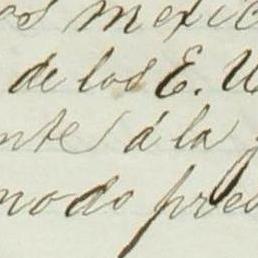 os mexic
de los E. U
nte á la
modo pre